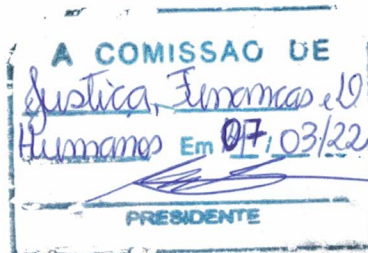 A COMISSAO DE
Justiça, Finanças e D
Humanos Em 07/03/22
PRESIDENTE